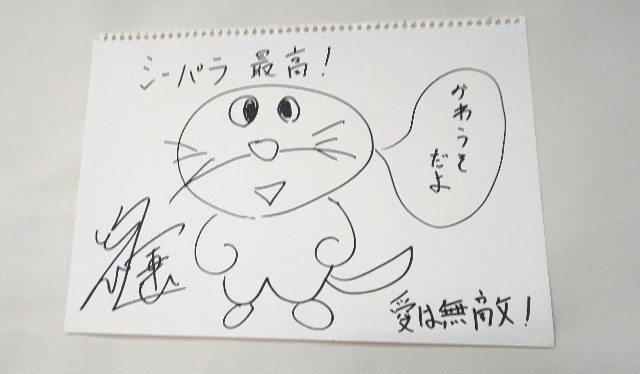 シーパラ 最高!
かわうそ
だよ
受は無敵!